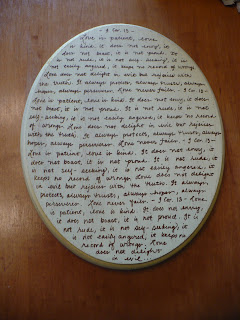 - I Cor. 13 -
Love is patient, love
is kind. it does not envy, it
does not boast, it is not proud. It
is not rude, it is not self-seeking, it is not
easily angered, it keeps no record of wrongs.
Love does not delight in evil but rejoices with
the truth. It always protects, always trusts, always
hopes, always perseveres. Love never fails. - I Cor. 13 -
Love is patient, love is kind. It does not envy, it does
not boast, it is not proud. It is not rude, it is not
self-seeking, it is not easily angered, it keeps no record
of wrongs. Love does not delight in evil but rejoices
with the truth. It always protects, always trusts, always
hopes, always perseveres. Love never fails. - I Cor. 13 -
Love is patient, love is kind. It does not envy, it
does not boast, it is not proud. It is not rude, it
is not self-seeking, it is not easily angered, it
keeps no record of wrongs. Love does not delight
in evil but rejoices with the truth. It always
protects, always trusts, always hopes, always
perseveres. Love never fails. - I Cor. 13 - Love
is patient, love is kind. It does not envy,
it does not boast, it is not proud. It is
not rude, it is not self-seeking, it
is not easily angered, it keeps no
record of wrongs. Love
does not delight
in evil...